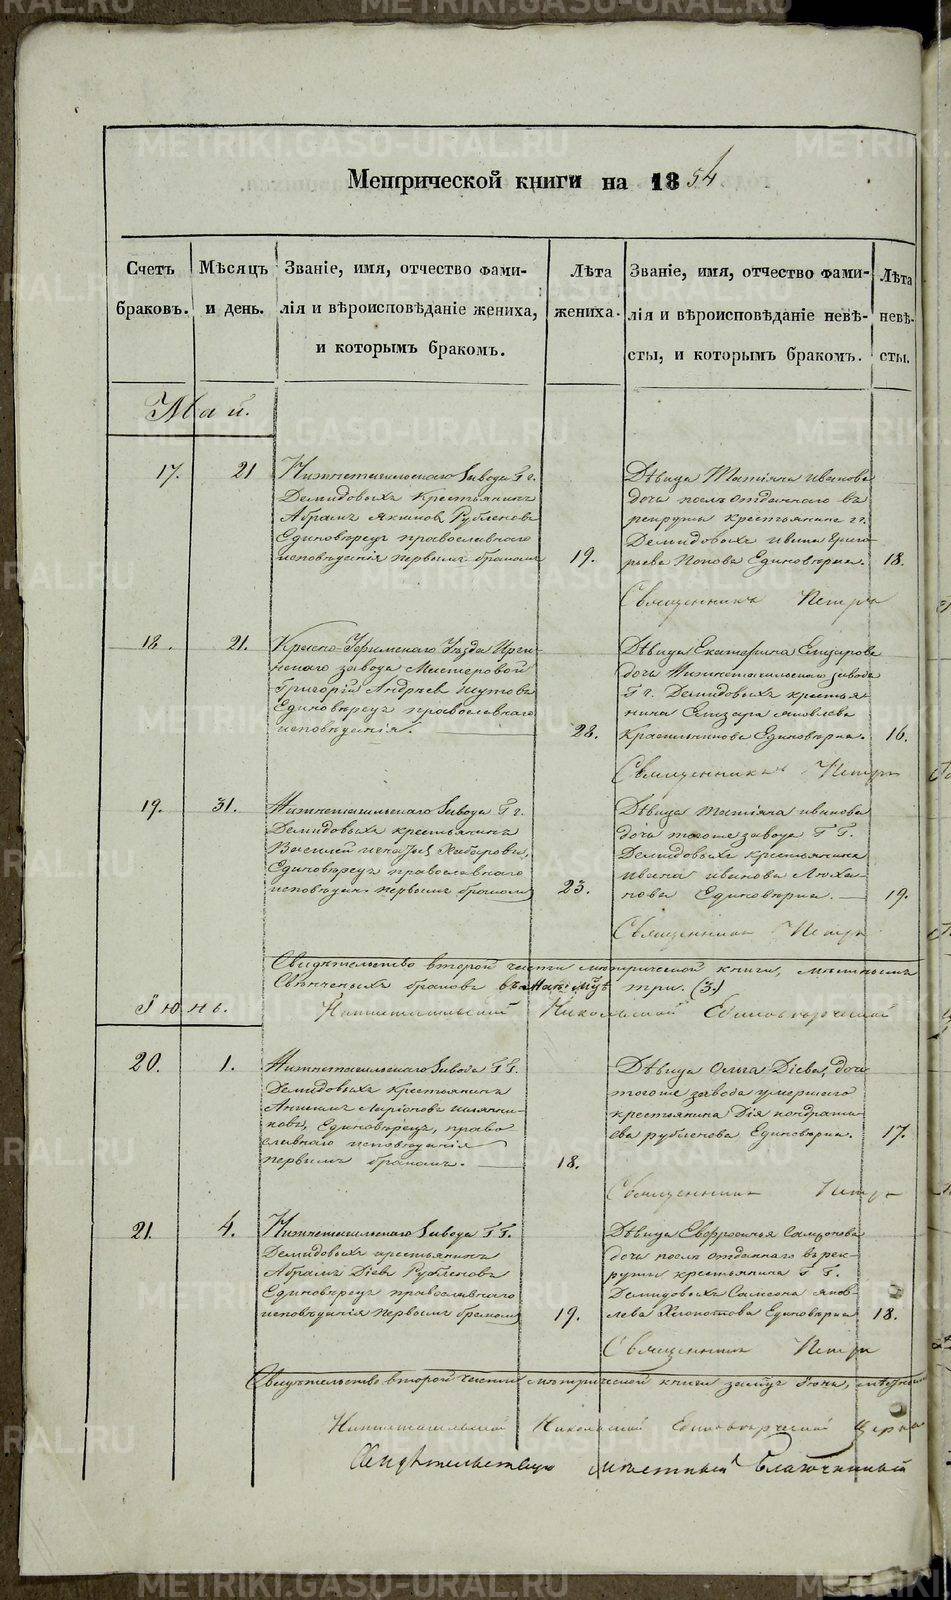 METRIKI.GASO-URAL.RU
Метрической книги на 1854
Счетъ браковъ.
Мѣсяцъ и день.
Званіе, имя, отчество фами-
лія и вѣроисповѣданіе жениха,
и которымъ бракомъ.
Лѣта жениха.
Званіе, имя, отчество фами-
лія и вѣроисповѣданіе невѣ-
сты, и которымъ бракомъ.
Лѣта невѣ-
сты.
Май.
17. 21
Нижнетагильскаго Завода Гг.
Демидовыхъ крестьянинъ
Абрамъ Якимовъ Рубленовъ
Единовѣрецъ православнаго
исповѣданія первымъ бракомъ
19.
Дѣвица Татіяна Иванова
дочь послѣ отданнаго въ
рекруты крестьянина гг.
Демидовыхъ Ивана Григо-
рьева Попова Единовѣрка.
18.
Священникъ Петръ
18. 21.
Красно-Уфимскаго Уѣзда Ирги-
нскаго завода Мастеровой
Григорій Андреевъ
Единовѣрецъ православнаго
исповѣданія.
28.
Дѣвица Екатерина Елизарова
дочь Нижнетагильскаго завода
Гг. Демидовыхъ крестья-
нина Елизара Яковлева
Красильникова Единовѣрка.
16.
Священникъ Петръ
19. 31.
Нижнетагильскаго Завода Гг.
Демидовыхъ крестьянинъ
Василій Хабаровъ,
Единовѣрецъ православнаго
исповѣдан. первымъ бракомъ
23.
Дѣвица Татіяна Иванова
дочь тогоже завода ГГ.
Демидовыхъ крестьянина
Ивана Иванова
Единовѣрка.
19.
Священникъ Петръ
Свидѣтельство второй части метрической книги,
браковъ въ Маѣ м-цѣ три. (3.)
Нижнетагильской Никольской Единовѣрческой
Іюнь.
20. 1.
Нижнетагильскаго Завода ГГ.
Демидовыхъ крестьянинъ
Ларіоновъ
Единовѣрецъ, право
славнаго исповѣданія
первымъ бракомъ.
18.
Дѣвица Ольга Діева, дочь
тогоже завода умершаго
крестьянина Дія Кондрать-
ева Рубленова Единовѣрка.
17.
Священникъ Петръ
21. 4.
Нижнетагильскаго Завода ГГ.
Демидовыхъ крестьянинъ
Абрамъ Діевъ Рубленовъ
Единовѣрецъ православнаго
исповѣданія первымъ бракомъ
19.
Дѣвица Самсонова
дочь послѣ отданнаго въ рек-
руты крестьянина ГГ.
Демидовыхъ Самсона Яков-
лева Единовѣрка
18.
Священникъ Петръ
Свидѣтельство второй части метрической книги
Нижнетагильской Никольской Единовѣрческой Церкви
Свидѣтельствую мѣстный Благочинный